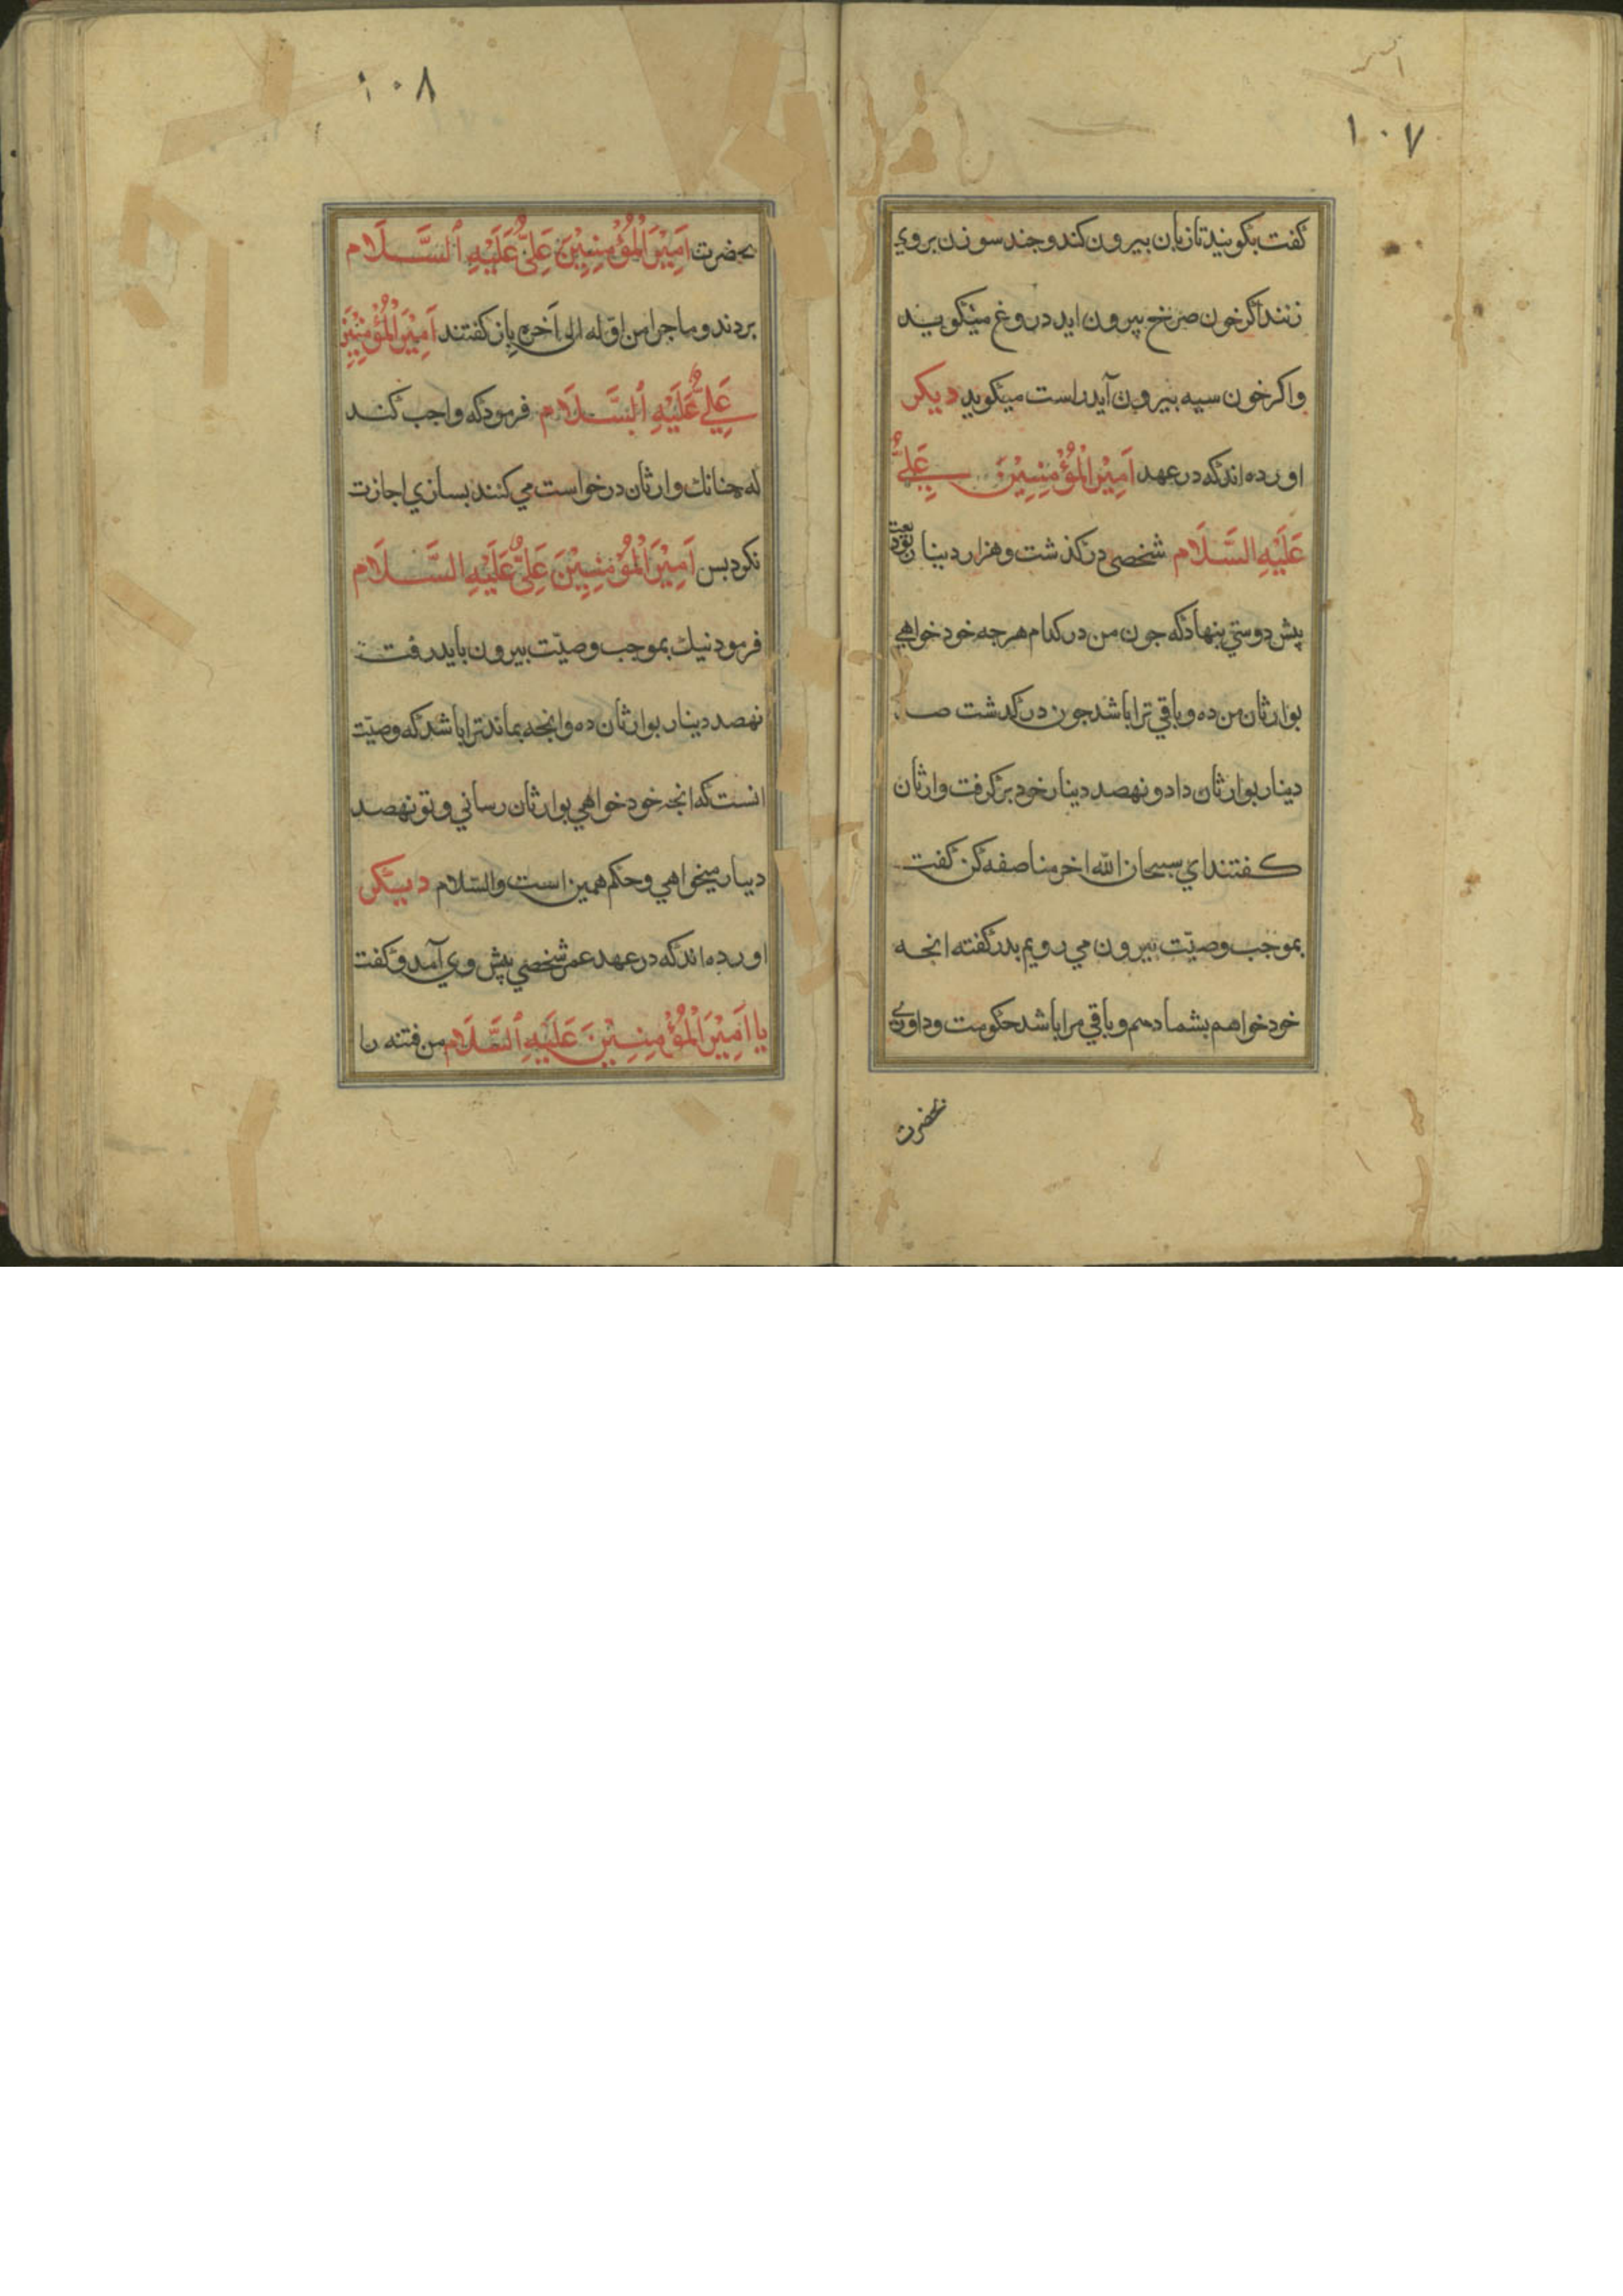 ۱۰۷
گفت بگویید تا زبان بیرون کند و جند سوزن بروي
زنند اگر خون صرخ بیرون اید دروغ میگوید
واکر خون سیه بیرون آید راست میکوید دیکر
اورده اند که در عهد اَمِیْرَ الْمُؤْمِنِیْنَ عَلِيٌّ
عَلَیْهِ السَّلَام شخصی درکذشت و هزار دینار
پیش دوستي بنهاد که جون من درکذرم هرجه خود خواهي
بوارثان من ده و باقي ترا باشد جون درکدشت صد
دینار بوارثان داد و نهصد دینار خود برگرفت وارثان
کفتند اي سبحان الله اخر مناصفه کن گفت
بموجب وصیّت بیرون مي رویم بدر گفته انجه
خود خواهم بشما دهم و باقي مرا باشد حکومت و داوري
بحضرت
۱۰۸
بحضرت اَمِیْرَ الْمُؤْمِنِیْنَ عَلِيٌّ عَلَیْهِ ٱلسَّلَام
بردند و ماجرا من اوّله الی آخره باز کفتند اَمِیْرَ الْمُؤْمِنِیْنَ
عَلِيٌّ عَلَیْهِ ٱلسَّلَام فرمود که واجب کند
که جنانك وارثان درخواست مي کنند بسازي اجازت
نکرد بس اَمِیْرَ الْمُؤْمِنِیْنَ عَلِيٌّ عَلَیْهِ السَّلَام
فرمود نیك بموجب وصیّت بیرون باید رفت
نهصد دینار بوارثان ده وانجه بماند ترا باشد که وصیّت
انست که انجه خود خواهي بوارثان رساني و تو نهصد
دینار میخواهي و حکم همین است والسّلام دیکر
اورده اند که در عهد عمر شخصي پیش وي آمد و گفت
یا اَمِیْرَ الْمُؤْمِنِیْنَ عَلَیْهِ ٱلسَّلَام من فتنه را